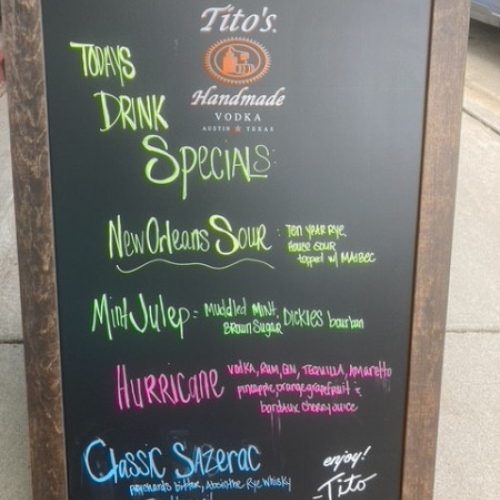 Tito's
Handmade
VODKA
AUSTIN ★ TEXAS
TODAYS
DRINK
SPECIALS:
New Orleans Sour : Ten year Rye,
House sour
topped w/ MALBEC
Mint Julep - Muddled Mint,
Brown Sugar DICKIES bourban
HURRICANE VODKA, RUM, GIN, TEQUILLA, Amaretto
pineapple, orange, grapefruit &
bordaux cherry juice
Classic SAZERAC
paychards bitter, Absinthe Rye Whisky
enjoy!
Tito